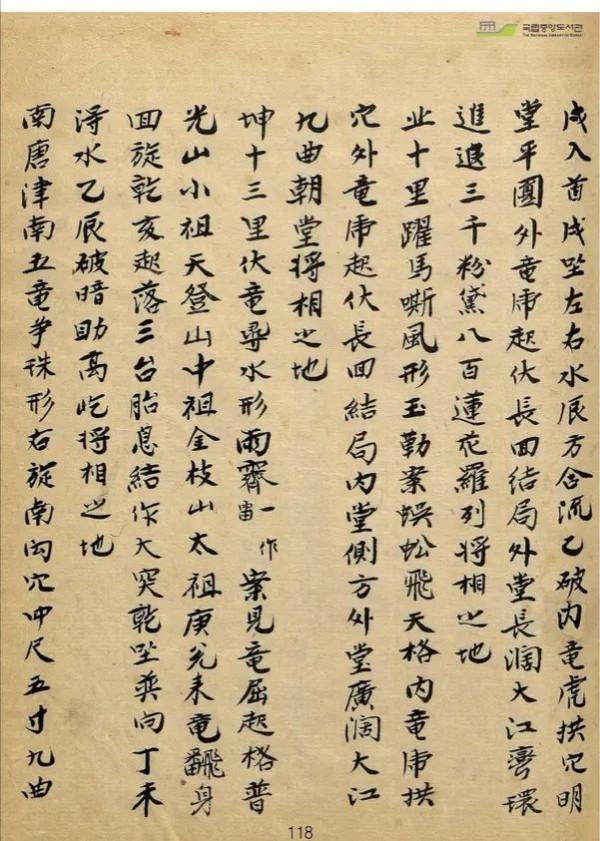 국립중앙도서관
THE NATIONAL LIBRARY OF KOREA
戌入首戌坐左右水辰方合流乙破內竜虎拱穴明
堂平圓外竜虎起伏長回結局外堂長濶大江彎環
進退三千粉黛八百蓮花羅列將相之地
业十里躍馬嘶風形玉勒案蜈蚣飛天格內竜虎拱
穴外竜虎起伏長回結局內堂側方外堂廣濶大江
九曲朝堂將相之地
坤十三里伏竜尋水形雨霽一作畓案見竜屈起格普
光山小祖天登山中祖金枝山太祖庚兌来竜飜身
回旋乾亥起落三台胎息結作大突乾坐巽向丁未
淂水乙辰破暗助高屹將相之地
南唐津南五竜爭珠形右旋南向穴冲尺五寸九曲
118